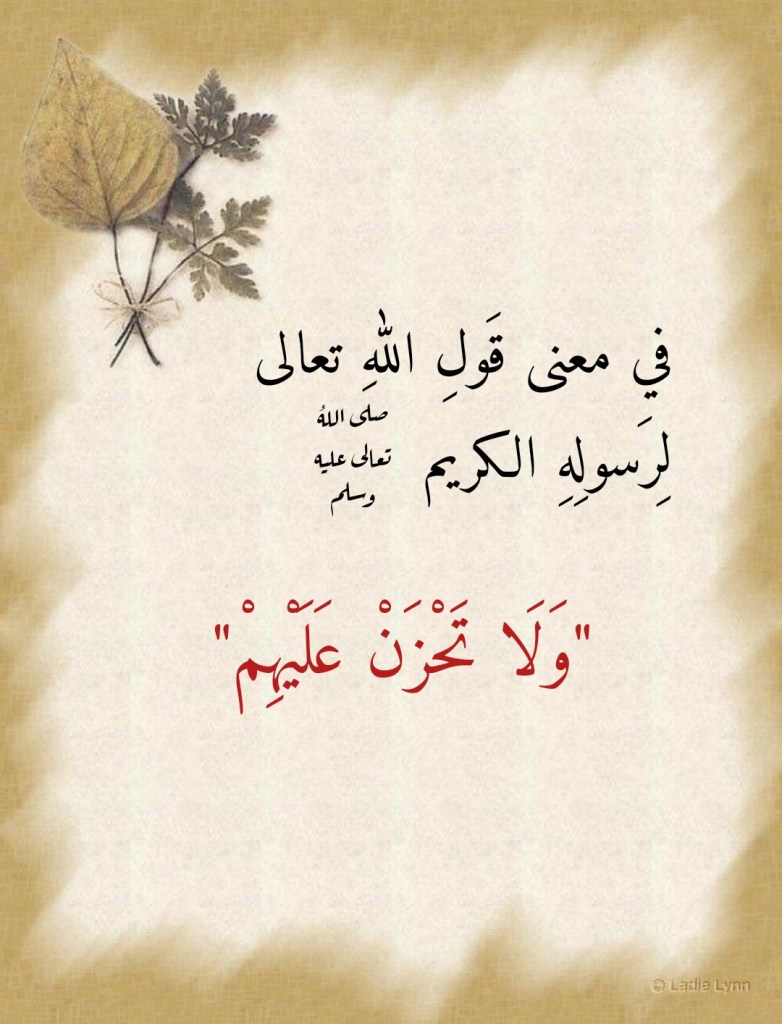 في معنى قَولِ اللهِ تعالى
لِرَسولِهِ الكريم صلى اللهُ تعالى عليه وسلم
"وَلَا تَحْزَنْ عَلَيْهِمْ"
© Ladie Lynn